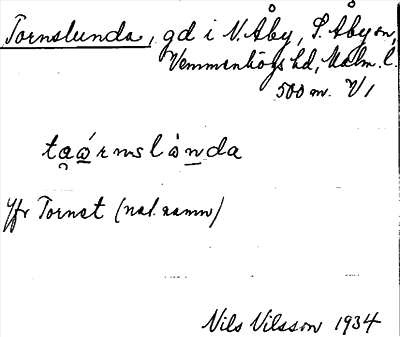 Tornslunda, gd i N. Åby, S. Åby sn,
Vemmenhögs hd, Malm. l.
500 m. V/1
ta̯a̲órnslànda
Jfr Tornet (nat. namn)
Nils Nilsson 1934